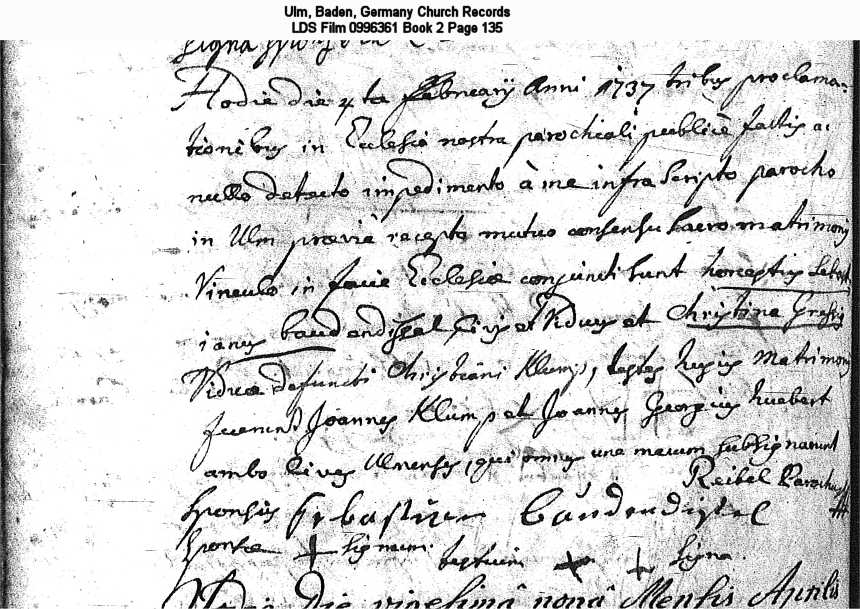 Ulm, Baden, Germany Church Records
LDS Film 0996361 Book 2 Page 135
signa
Hodie die 4ta februarij Anni 1737 tribus proclama-
tionibus in Ecclesia nostra parochiali publicè factis ac
nullo detecto impedimento à me infra scripto parocho
in Ulm praeviè recepto mutuo consensu sacro matrimonij
Vinculo in facie Ecclesiae conjuncti sunt Sebast
ianus baudendistel Civis et Viduus et Christina
Vidua defuncti Christiani Klump, testes hujus Matrimonij
fuerunt Joannes Klump et Joannes Georgius huebert
ambo Cives Ulmenses, qui omnes una mecum subsignarunt
Reibel Parochus
Sponsus sebastian baudendistel
Sponsae + signum testium + + signa.
die vigesimâ nonâ Mensis Aprilis